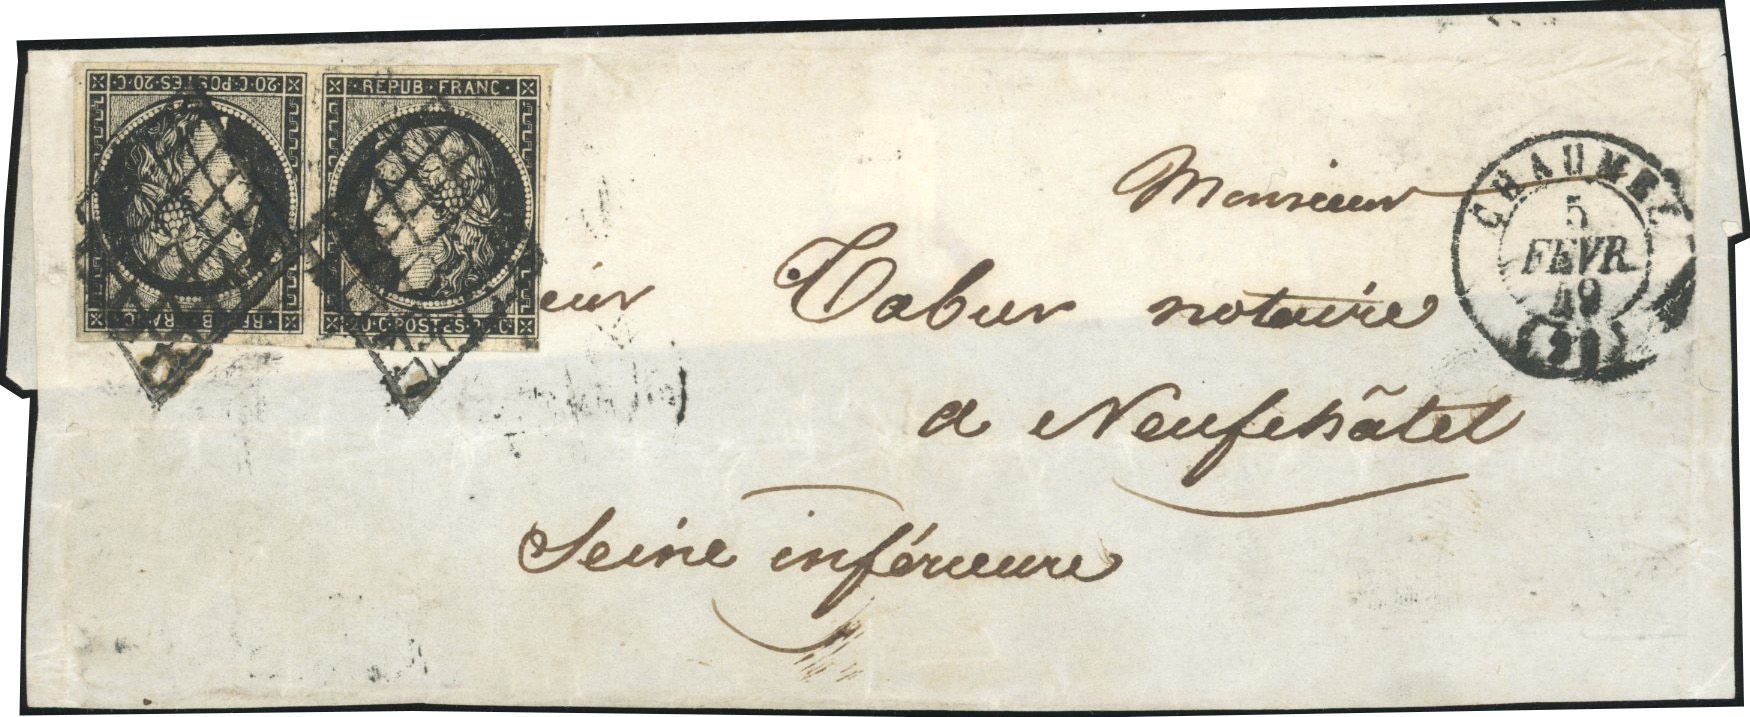 20·C·POSTES·20·C·
REPUB FRANC
· REPUB · FRANC ·
20·C·POSTES·20·C·
CHAUME
5
FEVR.
49
Monsieur
eur Tabur notaire
à Neufchâtel
Seine inférieure